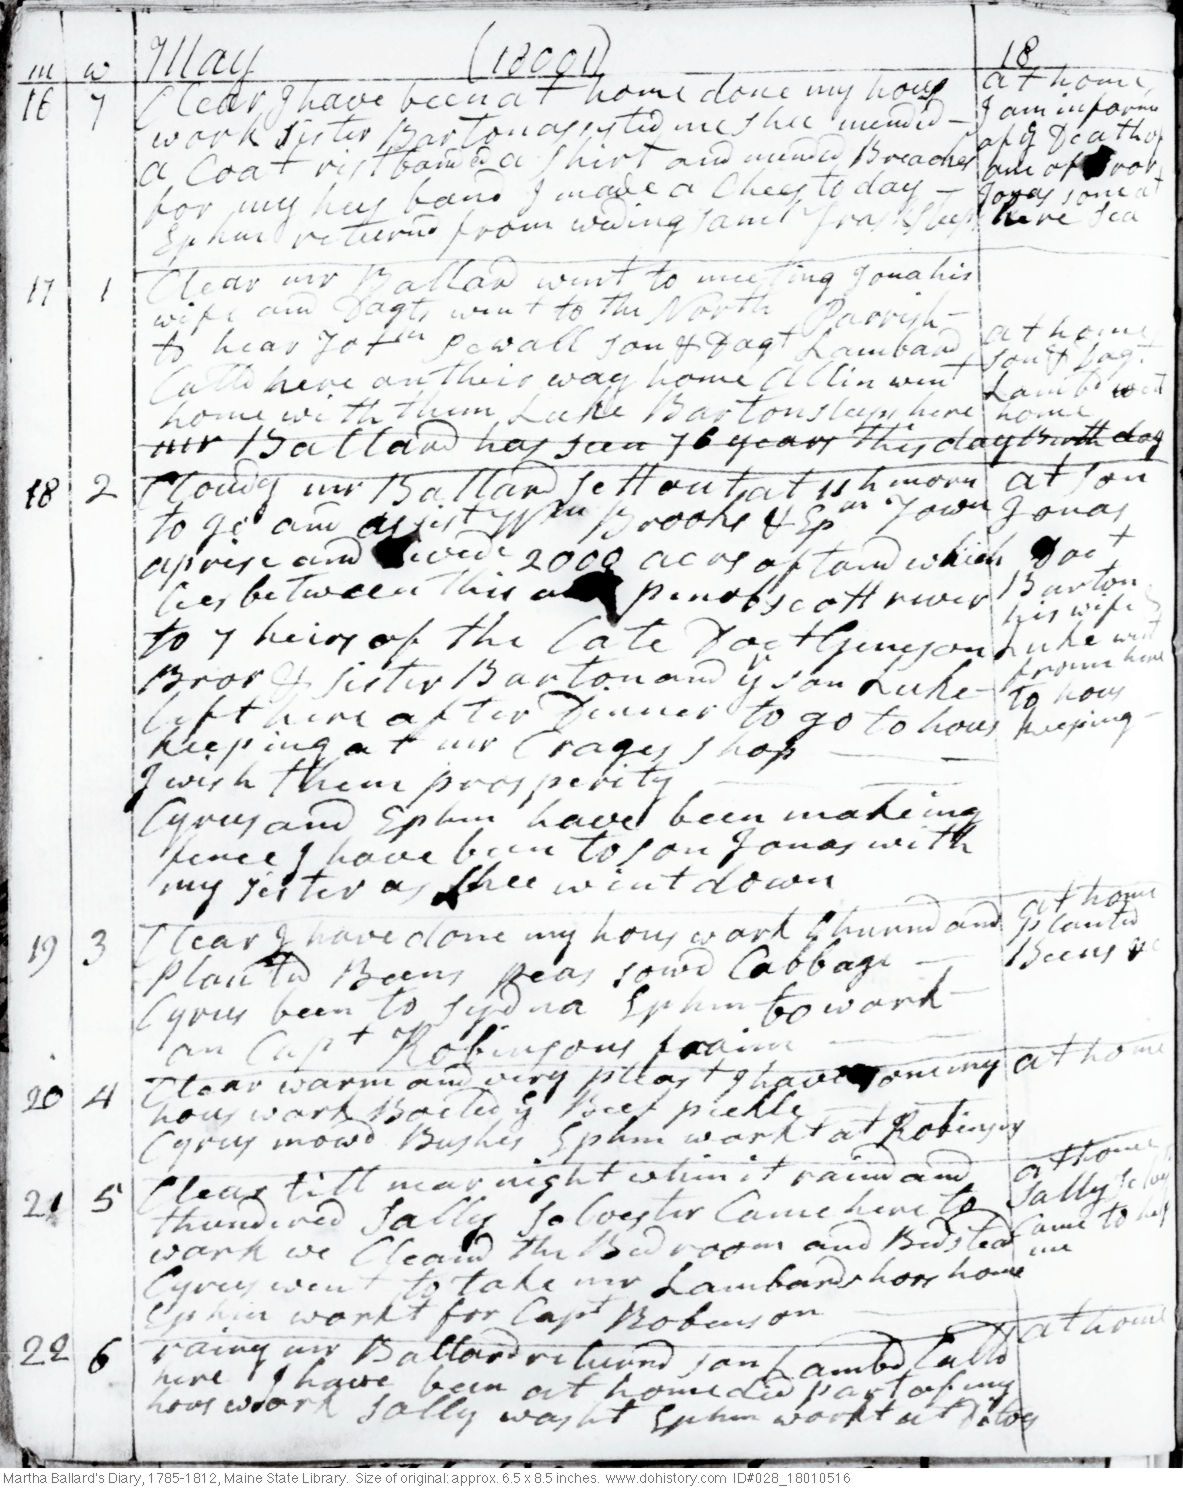 m w May (18001) 18
16 7 Clear I have been at home done my hous at home
work Sister Barton assisted me Shee mended – I am informd
a Coat ristbanded a Shirt and mended Breaches of ye Death of
for my husband I made a Chees to day – one of Bror
Ephm returnd from weding Saml Jonas sons at
here Sea
17 1 Clear mr Ballard went to meeting Jona his
wife and Dagts went to the North Parrish –
to hear Jotm Sewall son & Dagt Lambard at home
Calld here on their way home Allin went son & Dagt
home with them Luke Barton sleeps here Lambd went home
mr Ballard has seen 76 years this day Birth day
18 2 Cloudy mr Ballard sett out at 11 h morn at son
to go and assist Wm Brooks & Epm Town Jonas
aprise and 2000 acrs of land which Doct
lies between this and penobscott river Barton
to 7 heirs of the Late Doct Gengson his wife &
Bror & sister Barton and ye son Luke – Luke went
left here after Dinner to go to hous from here
keeping at mr Crages shop to hous
I wish them prosperity keeping –
Cyrus and Ephm have been makeing
fence I have been to son Jonas with
my sister as shee wint down
19 3 Clear I have done my hous work Churnd and at home
plantd Beens peas sowd Cabbage – plantd
Cyrus been to Sydna Ephm to work – Beens &c
on Capt Robinsons fraim
20 4 Clear warm and very pleast I have done my at home
hous work Boiled ye Beef pickle
Cyrus mowd Bushes Ephm workt at Robinsons
21 5 Clear till near night when it raind and at home
thundered Sally Solvester Came here to Sally
work we Cleand the Bedroom and Bedsted Came to help
Cyrus went to take mr Lambards hors home me
Ephm workt for Capt Robenson
22 6 rainy mr Ballard returnd son Lambd Calld at home
here I have been at home did part of my
hous work Sally washt Ephm workt at
Martha Ballard's Diary, 1785-1812, Maine State Library. Size of original: approx. 6.5 x 8.5 inches. www.dohistory.com ID#028_18010516